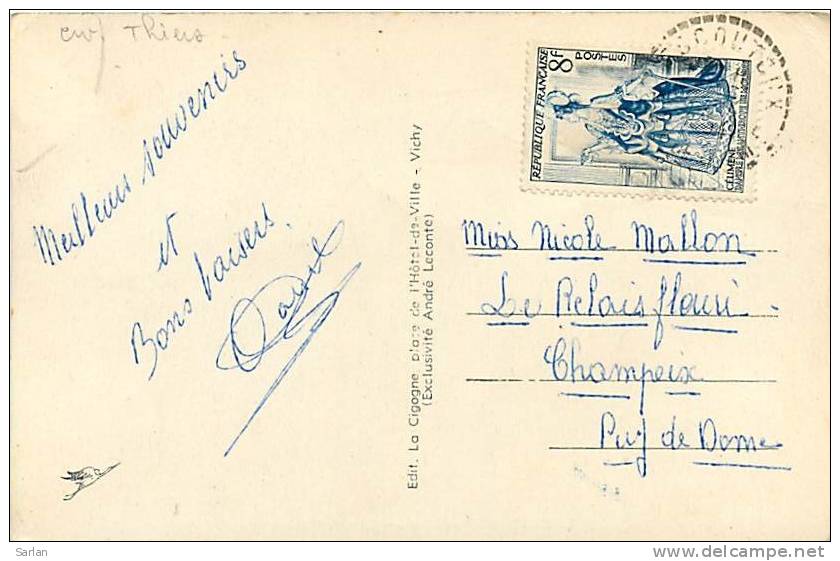 env Thiers
Meilleurs souvenirs
et
Bons baisers.
Edit. La Cigogne, place de l'Hôtel-de-Ville - Vichy
(Exclusivité André Leconte)
RÉPUBLIQUE FRANÇAISE
8F
POSTES
CÉLIMÈNE
ESCOUTOUX
Miss Nicole Mallon
Le Relais fleuri
Champeix
Puy de Dome
Sarlan
www.delcampe.net